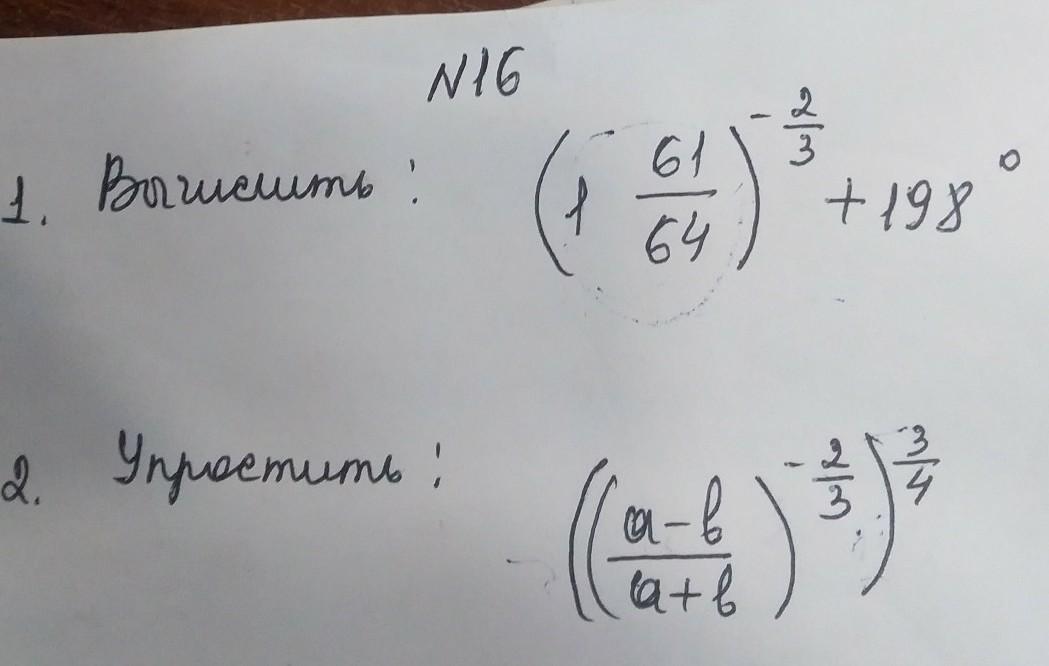 N16
1. Вычислить: (1 61/64)^(-2/3) + 198°
2. Упростить: (((a-b)/(a+b))^(-2/3))^(3/4)